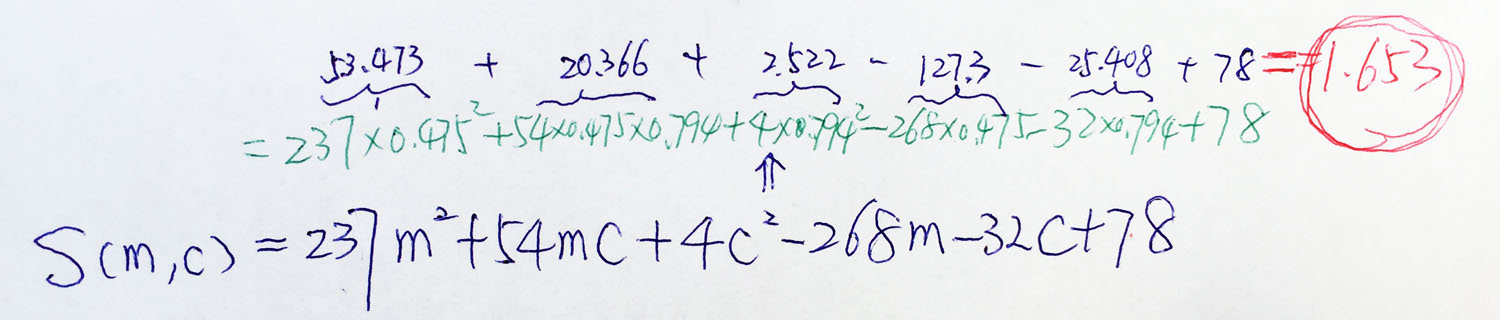 53.473 + 20.366 + 2.522 - 127.3 - 25.408 + 78 = 1.653
= 237×0.475²+54×0.475×0.794+4×0.794²-268×0.475-32×0.794+78
⇑
S(m,c) = 237m²+54mc+4c²-268m-32c+78